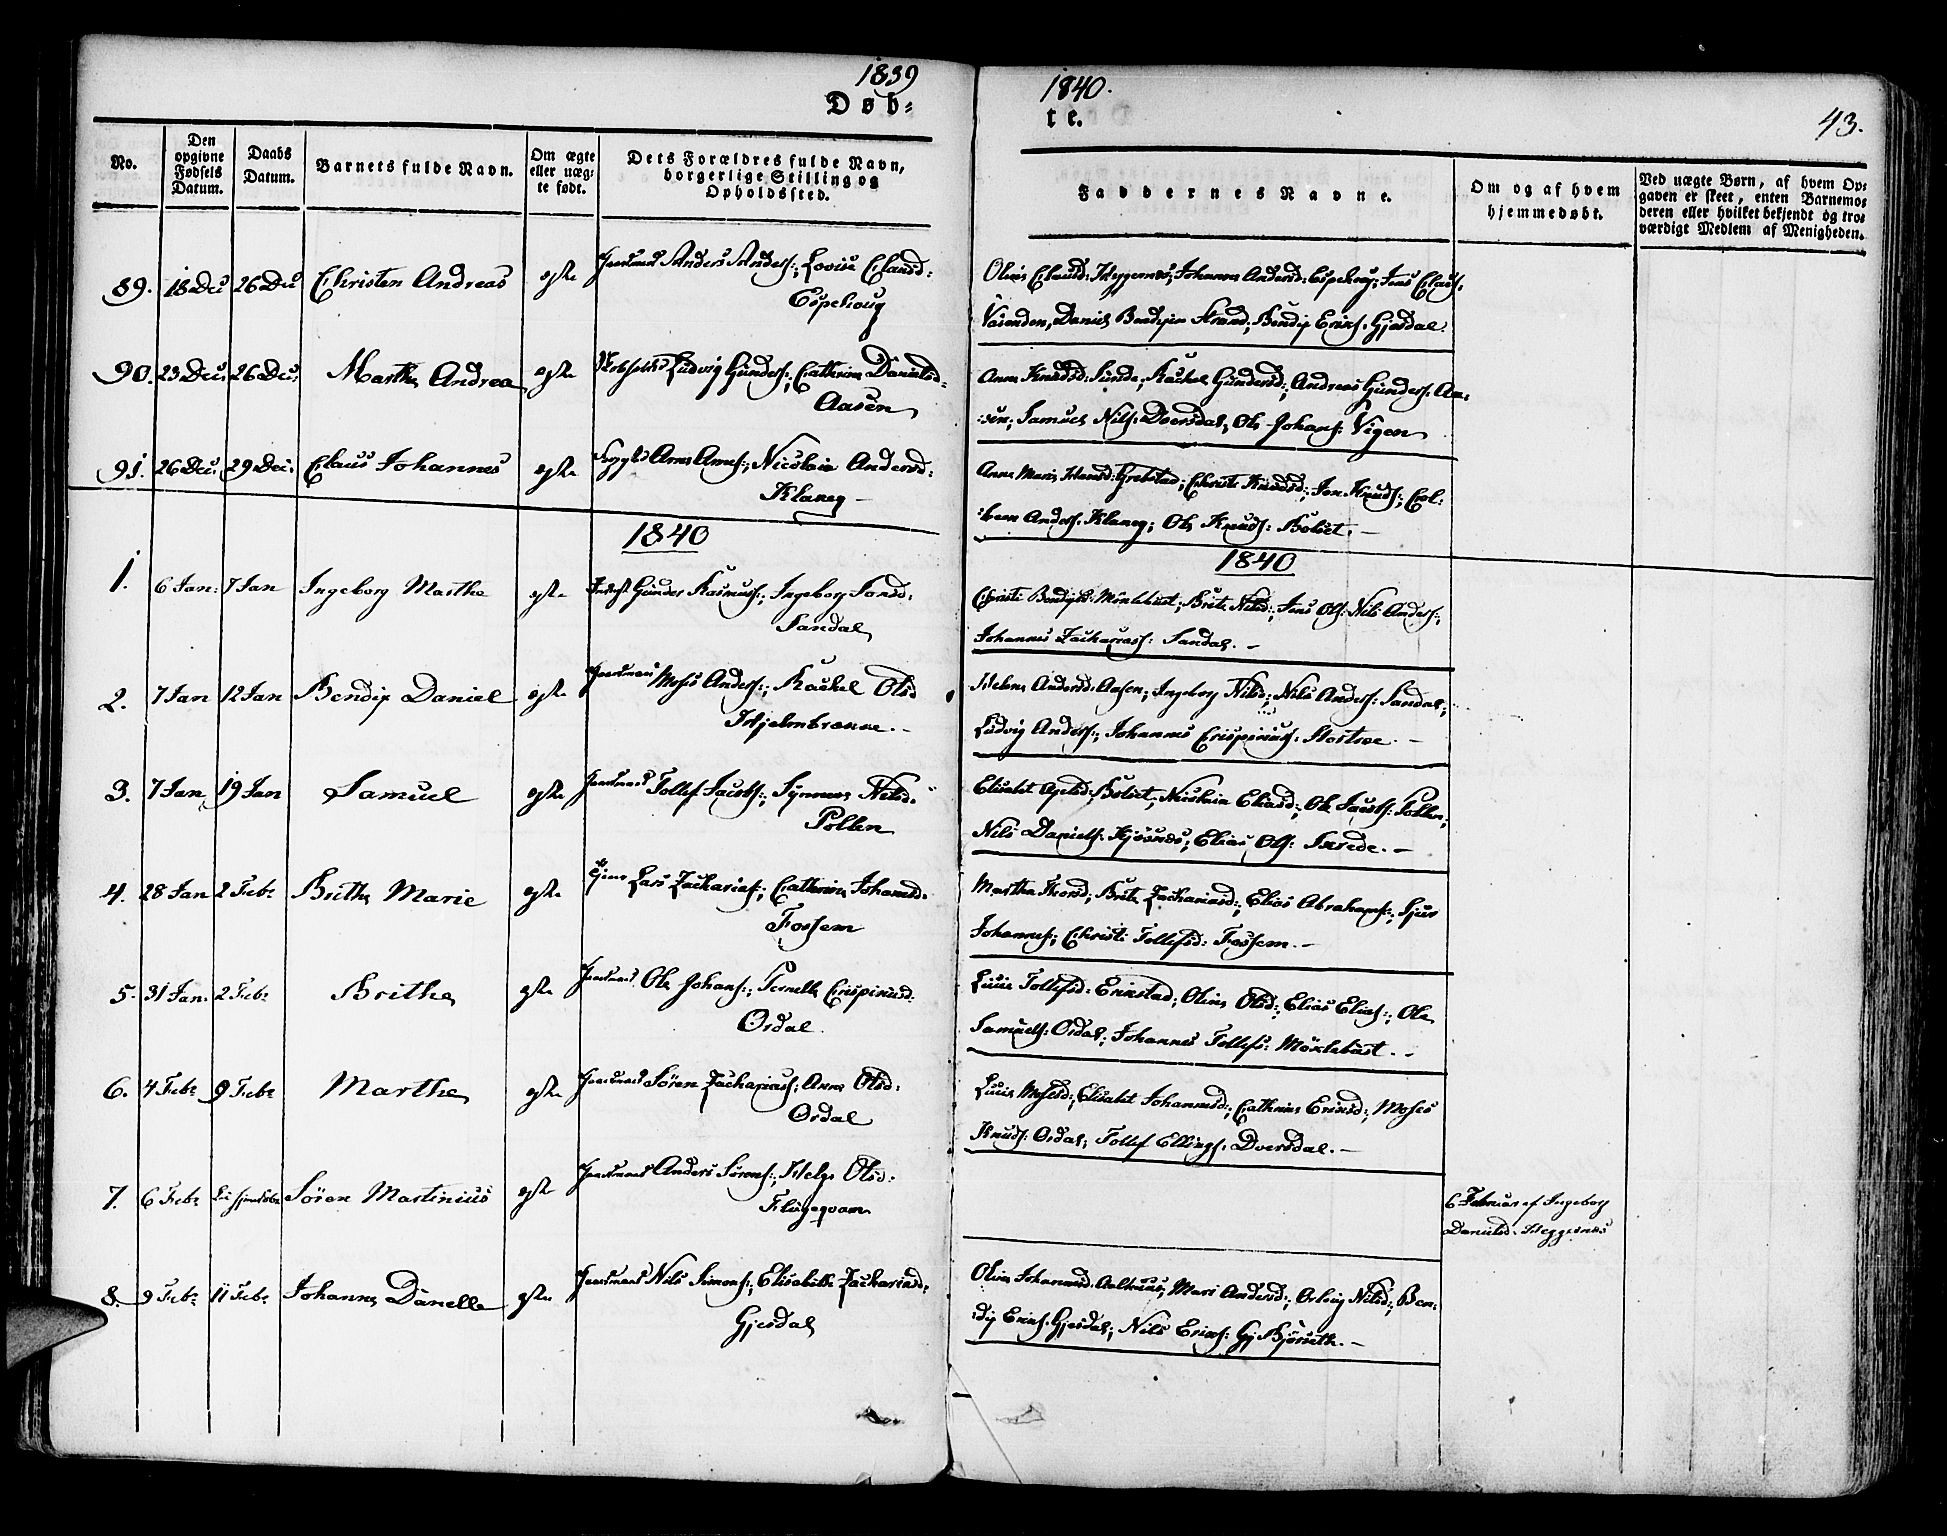 1839
Døb-
1840.
te.
43.
No.
Den opgivne Fødsels Datum.
Daabs Datum.
Barnets fulde Navn.
Om ægte eller uæg-te født.
Dets Forældres fulde Navn, borgerlige Stilling og Opholdssted.
Faddernes Navne.
Om og af hvem hjemmedøbt.
Ved uægte Børn, af hvem Op-gaven er skeet, enten Barnemo-deren eller hvilket bekjendt og tro-værdigt Medlem af Menigheden.
89. 18 Dec 26 Dec Christen Andreas egte Anders Anders:, Lovise Clausd:
Espehoug
Anders: Espehoug; Jens Claus:
Vasenden, Daniel Bendixen Strand; Bendix Erics: Gjesdal.
90. 23 Dec: 26 Dec: Marthe Andrea egte Ludvig Gunders:, Cathrine Danielsd:
Aasen
Anne Knudsd: Sunde, Rachel Gundersd:, Andreas Gunders: Aa-
sen; Samuel Nils: Dversdal, Ole Johans: Vigen
91. 26 Dec: 29 Dec: Claus Johannes egte Arne Arnes:, Nicolaia Andersd:
Klaneg
Anne Marie Grebstad; Christi Knudsd:, Jon Knuds:,
Anders: Klaneg; Ole Knuds: Bolset.
1840
1840
1. 6 Jan: 7 Jan Ingeborg Marthe egte Gunder Rasmus:, Ingeborg
Sandal
Christi Bendixd: Möklebust; Brite Nilsd:, Jens Ols: Nils Anders:,
Johannes Zacharias: Sandal.
2. 7 Jan 12 Jan Bendix Daniel egte Moses Anders:, Rachel Olsd
Hjelmbrække.
Helene Andersd: Aasen; Ingeborg Nilsd:, Nils Anders: Sandal;
Ludvig Anders:, Johannes Crispinus:
3. 7 Jan 19 Jan Samuel egte Tollef Jacobs:, Synneve Nilsd:
Pollen
Elisabet Bolset, Nicolaia Eliasd:, Ole Jacobs: Pollen;
Nils Daniels: Kjösnes; Elias Ols:
4. 28 Jan 2 Febr Brithe Marie egte Lars Zacharias:, Cathrine Johannesd:
Fossem
Martha Brite Zachariasd:, Elias Abrahams:, Sjur
Johannes:; Christi Tollefsd: Fossem.
5. 31 Jan. 2 Febr Brithe egte Ole Johans:, Pernelle Crispinusd:
Ordal.
Tollefsd: Erikstad; Oline Olsd:, Elias Elias:, Ole
Samuels: Ordal; Johannes Tollefs: Möklebust.
6. 4 Febr 9 Febr Marthe egte Sören Zacharias:, Anne Olsd:
Ordal
Mosesd:, Elisabet Johannesd:, Cathrine Ericsd:, Moses
Knuds: Ordal; Tollef Ellings: Dversdal.
7. 6 Febr Sören Martinius egte Anders Sörens:, Helge Olsd:
Flugeqvam
6 Februar af Ingeborg
Danielsd: Heggenes
8. 9 Febr 11 Febr Johanne Danelle egte Nils Simons:, Elisabethe Zachariasd:
Gjesdal
Oline Johannesd: Aalhuus; Mari Andersd:, Nilsd:, Ben-
dix Erics: Gjesdal; Nils Erics: